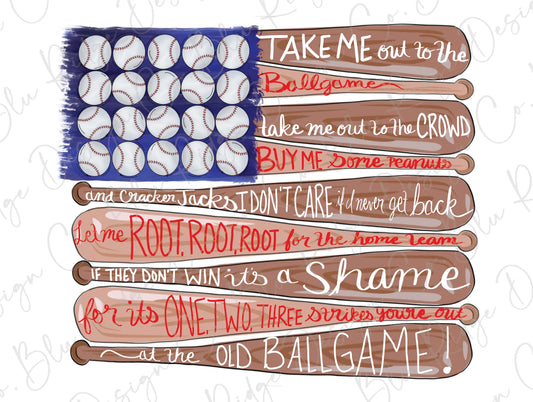 TAKE ME out to the
Ballgame
take me out to the CROWD
BUY ME some peanuts
and Cracker Jacks I DON'T CARE if I never get back
Let me ROOT, ROOT, ROOT for the home team
IF THEY DON'T WIN it's a Shame
for its ONE, TWO, THREE strikes you're out
at the OLD BALLGAME!
Blu Ridge Design Co.